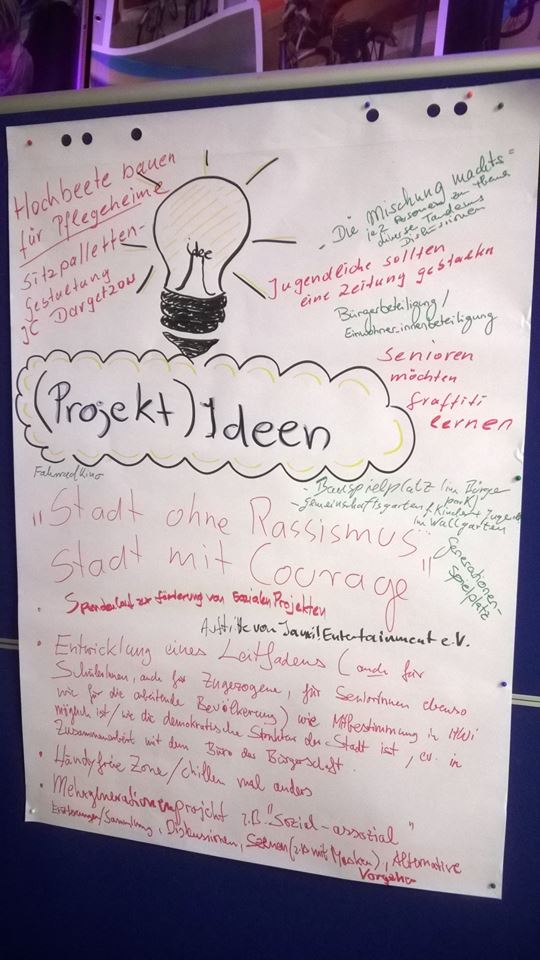 Hochbeete bauen
für Pflegeheime
Sitzpalletten-
gestaltung
JC Dargetzow
idee
"Die Mischung macht's"
jez Personen zu Thema
diverse Tandems
Diskussionen
Jugendliche sollten
eine Zeitung gestalten
Bürgerbeteiligung/
Einwohner.innenbeteiligung
Senioren
möchten
Graffiti
lernen
(Projekt) Ideen
Fahrradkino
- Bauspielplatz (im Bürgerpark)
- Gemeinschaftsgarten f. Kinder & Jugend
im Wallgarten
Generationen-
spielplatz
"Stadt ohne Rassismus
Stadt mit Courage"
• Spendenlauf zur Förderung von sozialen Projekten
Auftritte von Jamil Entertainment e.V.
• Entwicklung eines Leitfadens (auch für
SchülerInnen, auch für Zugezogene, für SeniorInnen ebenso
wie für die arbeitende Bevölkerung) wie Mitbestimmung in HWI
möglich ist/wie die demokratische Struktur der Stadt ist, ev. in
Zusammenarbeit mit dem Büro der Bürgerschaft.
• Handyfreie Zone/chillen mal anders
• Mehrgenerationenprojekt z.B. "Sozial-assozial"
/Sammlung, Diskussionen, Szenen (z.B. mit Masken), Alternative
Vorgehen